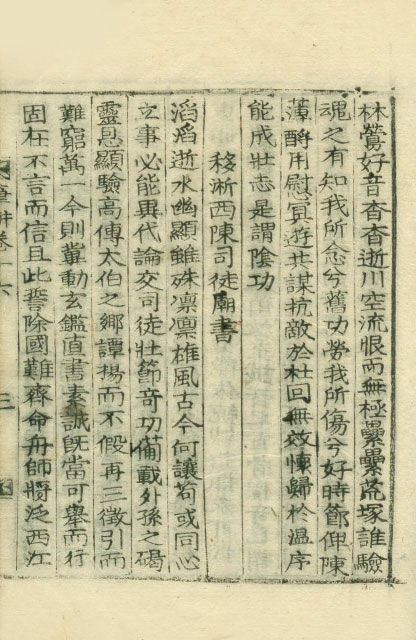 林鶯好音杳杳逝川空流恨而無極纍纍荒塚誰驗
魂之有知我所念兮舊功勞我所傷兮好時節俾陳
薄酹用慰冥遊共謀抗敵於杜回無效懷歸於溫序
能成壯志是謂陰功
移浙西陳司徒廟書
滔滔逝水幽顯雖殊凛凛雄風古今何讓苟或同心
立事必能異代論交司徒壯節奇功備載外孫之碣
靈恩顯驗高傳太伯之鄉譚揚而不假再三徵引而
難窮萬一今則冀動玄鑑直書素誠旣當可舉而行
固在不言而信且此誓除國難齊命舟師將泛西江
筆耕卷十六 三